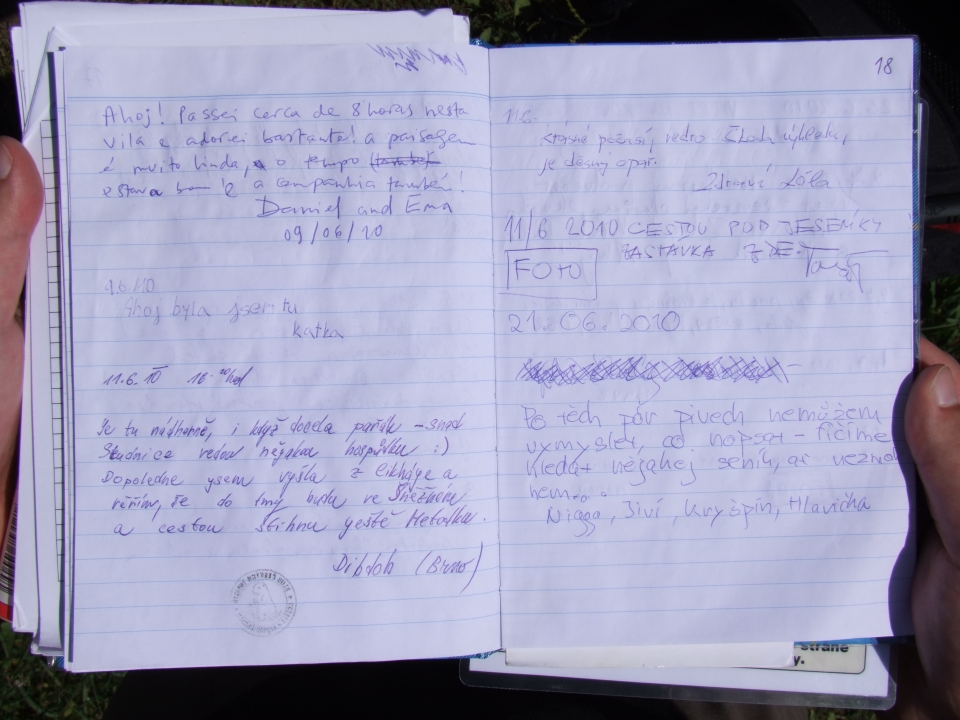 Ahoj! Passei cerca de 8 horas nesta
vila e adorei bastante! a paisagem
é muito linda, o tempo
estava bom e a companhia também!
Daniel and Ema
09/06/10
9.6./10
Ahoj byla jsem tu
Katka
11.6.10 16.00 hod
Je tu nádherně, i když docela pařák - snad
Studnice vedou nějakou hospůdku :)
Dopoledne jsem vyšla z Cikháje a
věřím, že do tmy budu ve Sněžném
a cestou štihnu ještě
Dibdob (Brno)
18
11.6.
počasí, vedro
je děsný opar.
Zdraví Lóla
11/6 2010 CESTOU POD JESENÍKY
ZASTÁVKA ZDE.
FOTO
21.06.2010
Po těch pár pivech nemůžem
vymyslet, co napsat - řičíme
hledat nějakej seník, ať nezmok
nem...
Nigga, Jiví, Kryšpín, Hlavicha
straně
y.